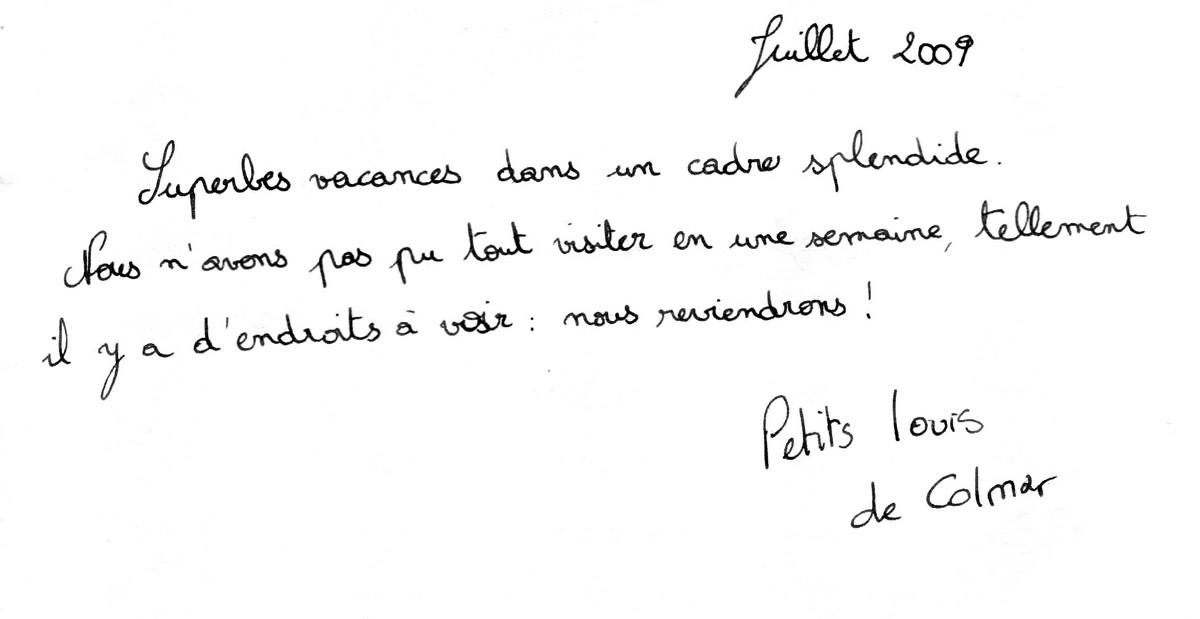 Juillet 2009
Superbes vacances dans un cadre splendide.
Nous n'avons pas pu tout visiter en une semaine, tellement
il y a d'endroits à voir : nous reviendrons !
Petits louis
de Colmar